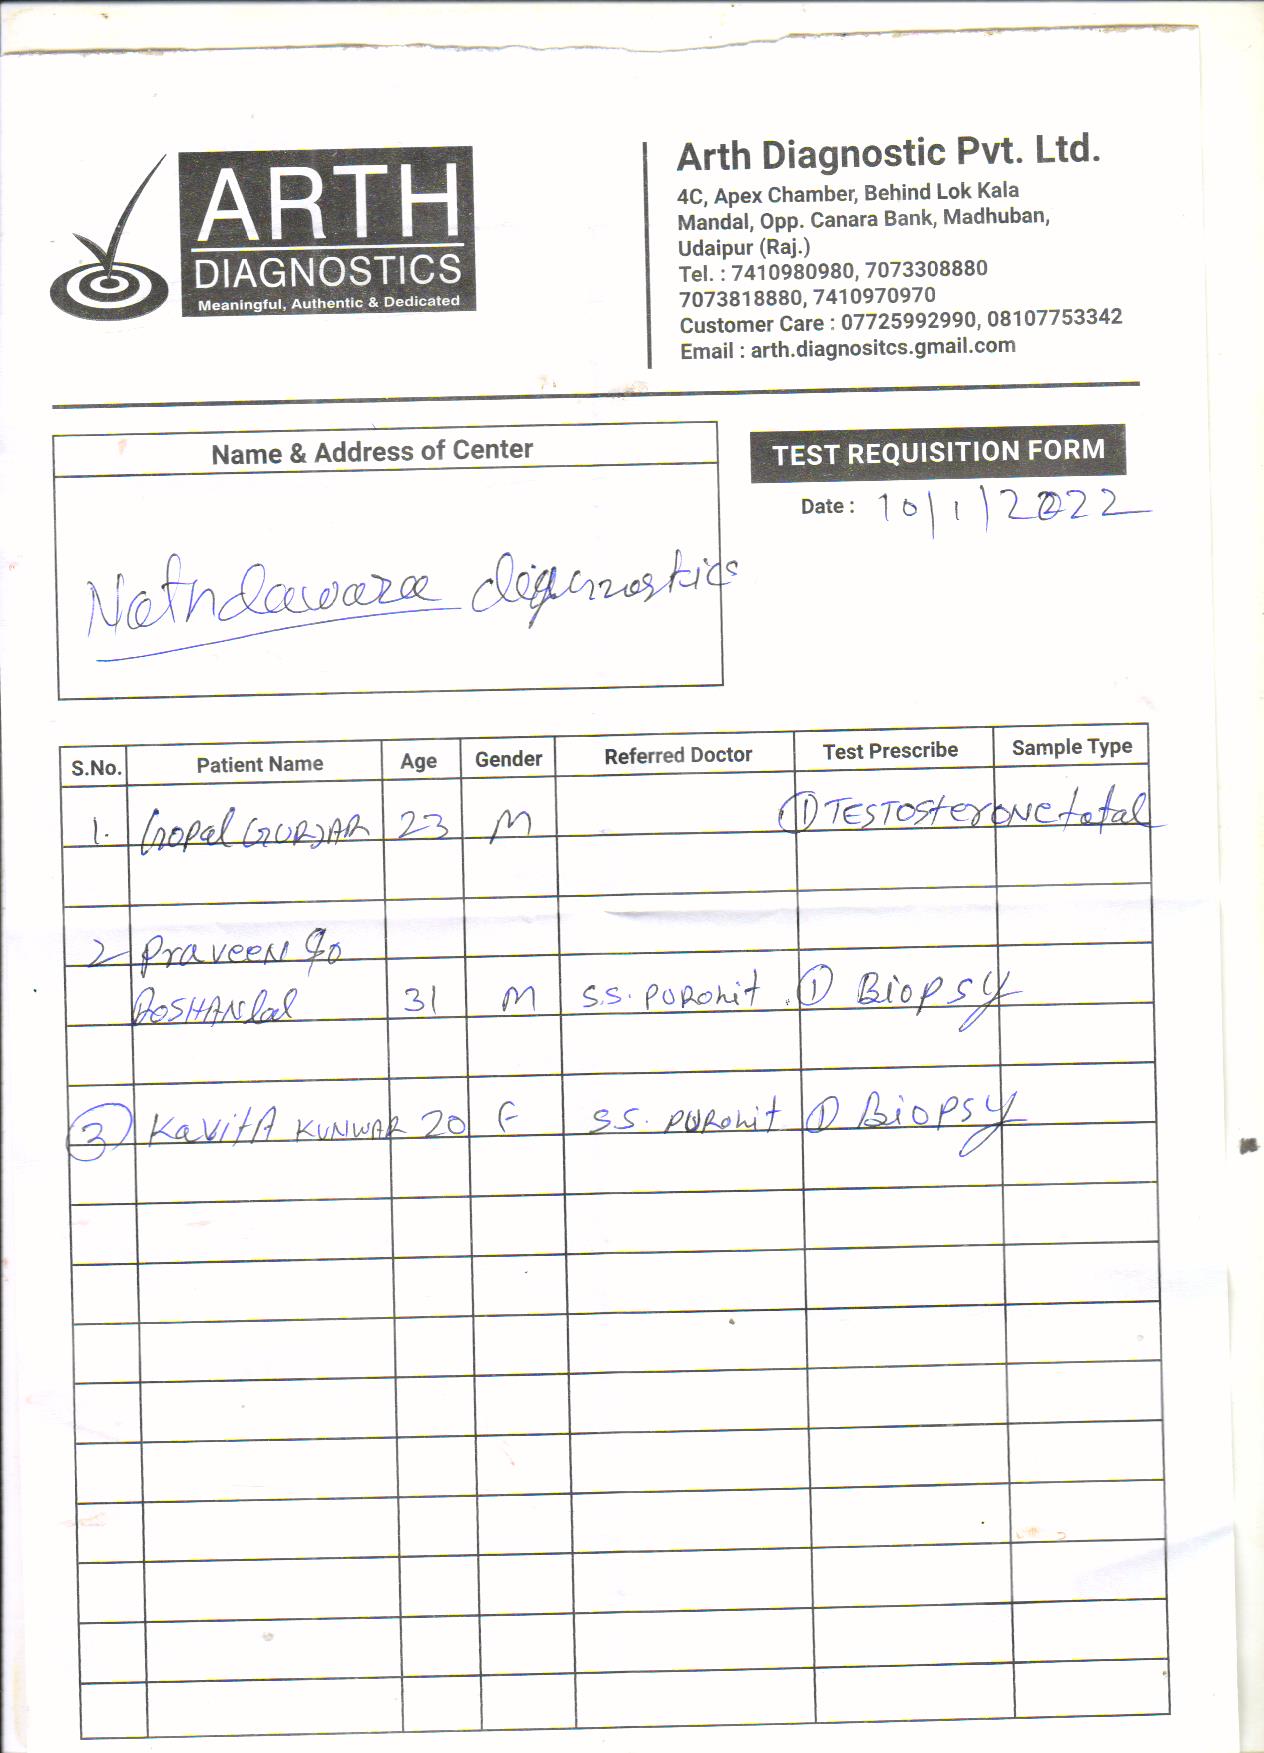 ARTH
DIAGNOSTICS
Meaningful, Authentic & Dedicated
Arth Diagnostic Pvt. Ltd.
4C, Apex Chamber, Behind Lok Kala
Mandal, Opp. Canara Bank, Madhuban,
Udaipur (Raj.)
Tel. : 7410980980, 7073308880
7073818880, 7410970970
Customer Care : 07725992990, 08107753342
Email : arth.diagnositcs.gmail.com
Name & Address of Center
TEST REQUISITION FORM
Date : 10/1/2022
Nathdawara diagnostics
S.No. Patient Name Age Gender Referred Doctor Test Prescribe Sample Type
1. Gopal GURJAR 23 M ① TESTOsterONE total
2 Praveen S/o
ROSHANlal 31 M S.S. PUROhit ① BiOPSY
③ KaVitA KUNWAR 20 F S.S. PUROhit ① BiOPSY